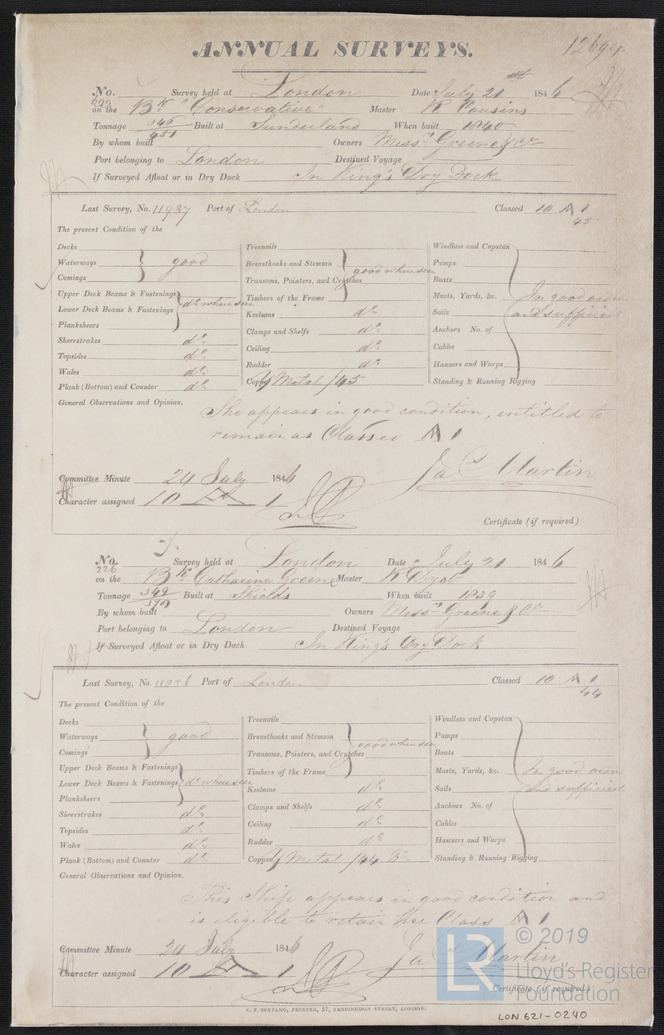 ANNUAL SURVEYS.
No. 
Survey held at London Date July 21st 1846
on the Bk "Conservative" Master R Cousins
Tonnage 451 Built at Sunderland When built 1840
By whom built Owners Messrs Greene & Co
Port belonging to London Destined Voyage
If Surveyed Afloat or in Dry Dock In King's Dry Dock
Last Survey, No. 11937 Port of London Classed 10 A 1
45
The present Condition of the
Decks
Waterways good
Comings
Upper Deck Beams & Fastenings
Lower Deck Beams & Fastenings do when seen
Planksheers
Sheerstrakes do
Topsides do
Wales do
Plank (Bottom) and Counter do
Treenails
Breasthooks and Stemson
Transoms, Pointers, and Crutches good when seen
Timbers of the Frame
Keelsons do
Clamps and Shelfs do
Ceiling do
Rudder do
Copper Y Metal /45
Windlass and Capstan
Pumps
Boats
Masts, Yards, &c. In good order
Sails and sufficient
Anchors No. of
Cables
Hawsers and Warps
Standing & Running Rigging
General Observations and Opinion.
She appears in good condition, entitled to
remain as Classed A 1
Jas Martin
Committee Minute 24 July 1846
Character assigned 10 A 1
Certificate (if required)
No. 226 Survey held at London Date July 21 1846
on the Bk Catharine Greene Master
Tonnage 349 Built at Shields When built 1839
By whom built Owners Messrs Greene & Co
Port belonging to London Destined Voyage
If Surveyed Afloat or in Dry Dock In King's Dry Dock
Last Survey, No. 11936 Port of London Classed 10 A 1
44
The present Condition of the
Decks
Waterways good
Comings
Upper Deck Beams & Fastenings
Lower Deck Beams & Fastenings do when seen
Planksheers
Sheerstrakes do
Topsides do
Wales do
Plank (Bottom) and Counter do
Treenails
Breasthooks and Stemson good when seen
Transoms, Pointers, and Crutches
Timbers of the Frame
Keelsons do
Clamps and Shelfs do
Ceiling do
Rudder do
Copper Y Metal /44
Windlass and Capstan
Pumps
Boats
Masts, Yards, &c. In good order
Sails and sufficient
Anchors No. of
Cables
Hawsers and Warps
Standing & Running Rigging
General Observations and Opinion.
This Ship appears in good condition and
is eligible to retain her Class A 1
Jas Martin
Committee Minute 24 July 1846
Character assigned 10 A 1
Certificate (if required)
C. F. SEYFANG, PRINTER, 57, FARRINGDON STREET, LONDON.
LR © 2019
Lloyd's Register
Foundation
LON 621-0240